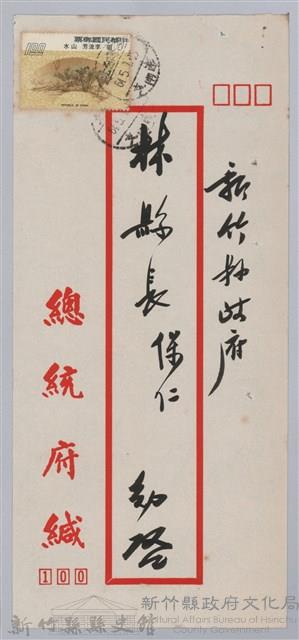 新竹縣政府
林縣長保仁
勛啓
總統府緘
100
中華民國郵票
100
明 李流芳 山水
REPUBLIC OF CHINA
新竹縣政府文化局
Cultural Affairs Bureau of Hsinchu
County Government
新竹縣縣史館